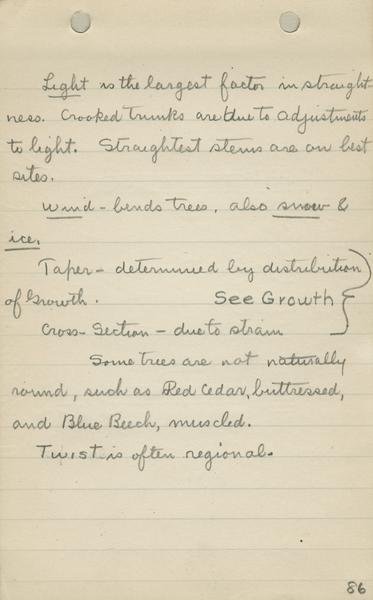 Light is the largest factor in straight-
ness. Crooked trunks are due to adjustments
to light. Straightest stems are on best
sites.
Wind - bends trees, also snow &
ice.
Taper - determined by distribution
of Growth. See Growth
Cross-Section - due to strain
Some trees are not naturally
round, such as Red Cedar, buttressed,
and Blue Beech, muscled.
Twist is often regional.
86